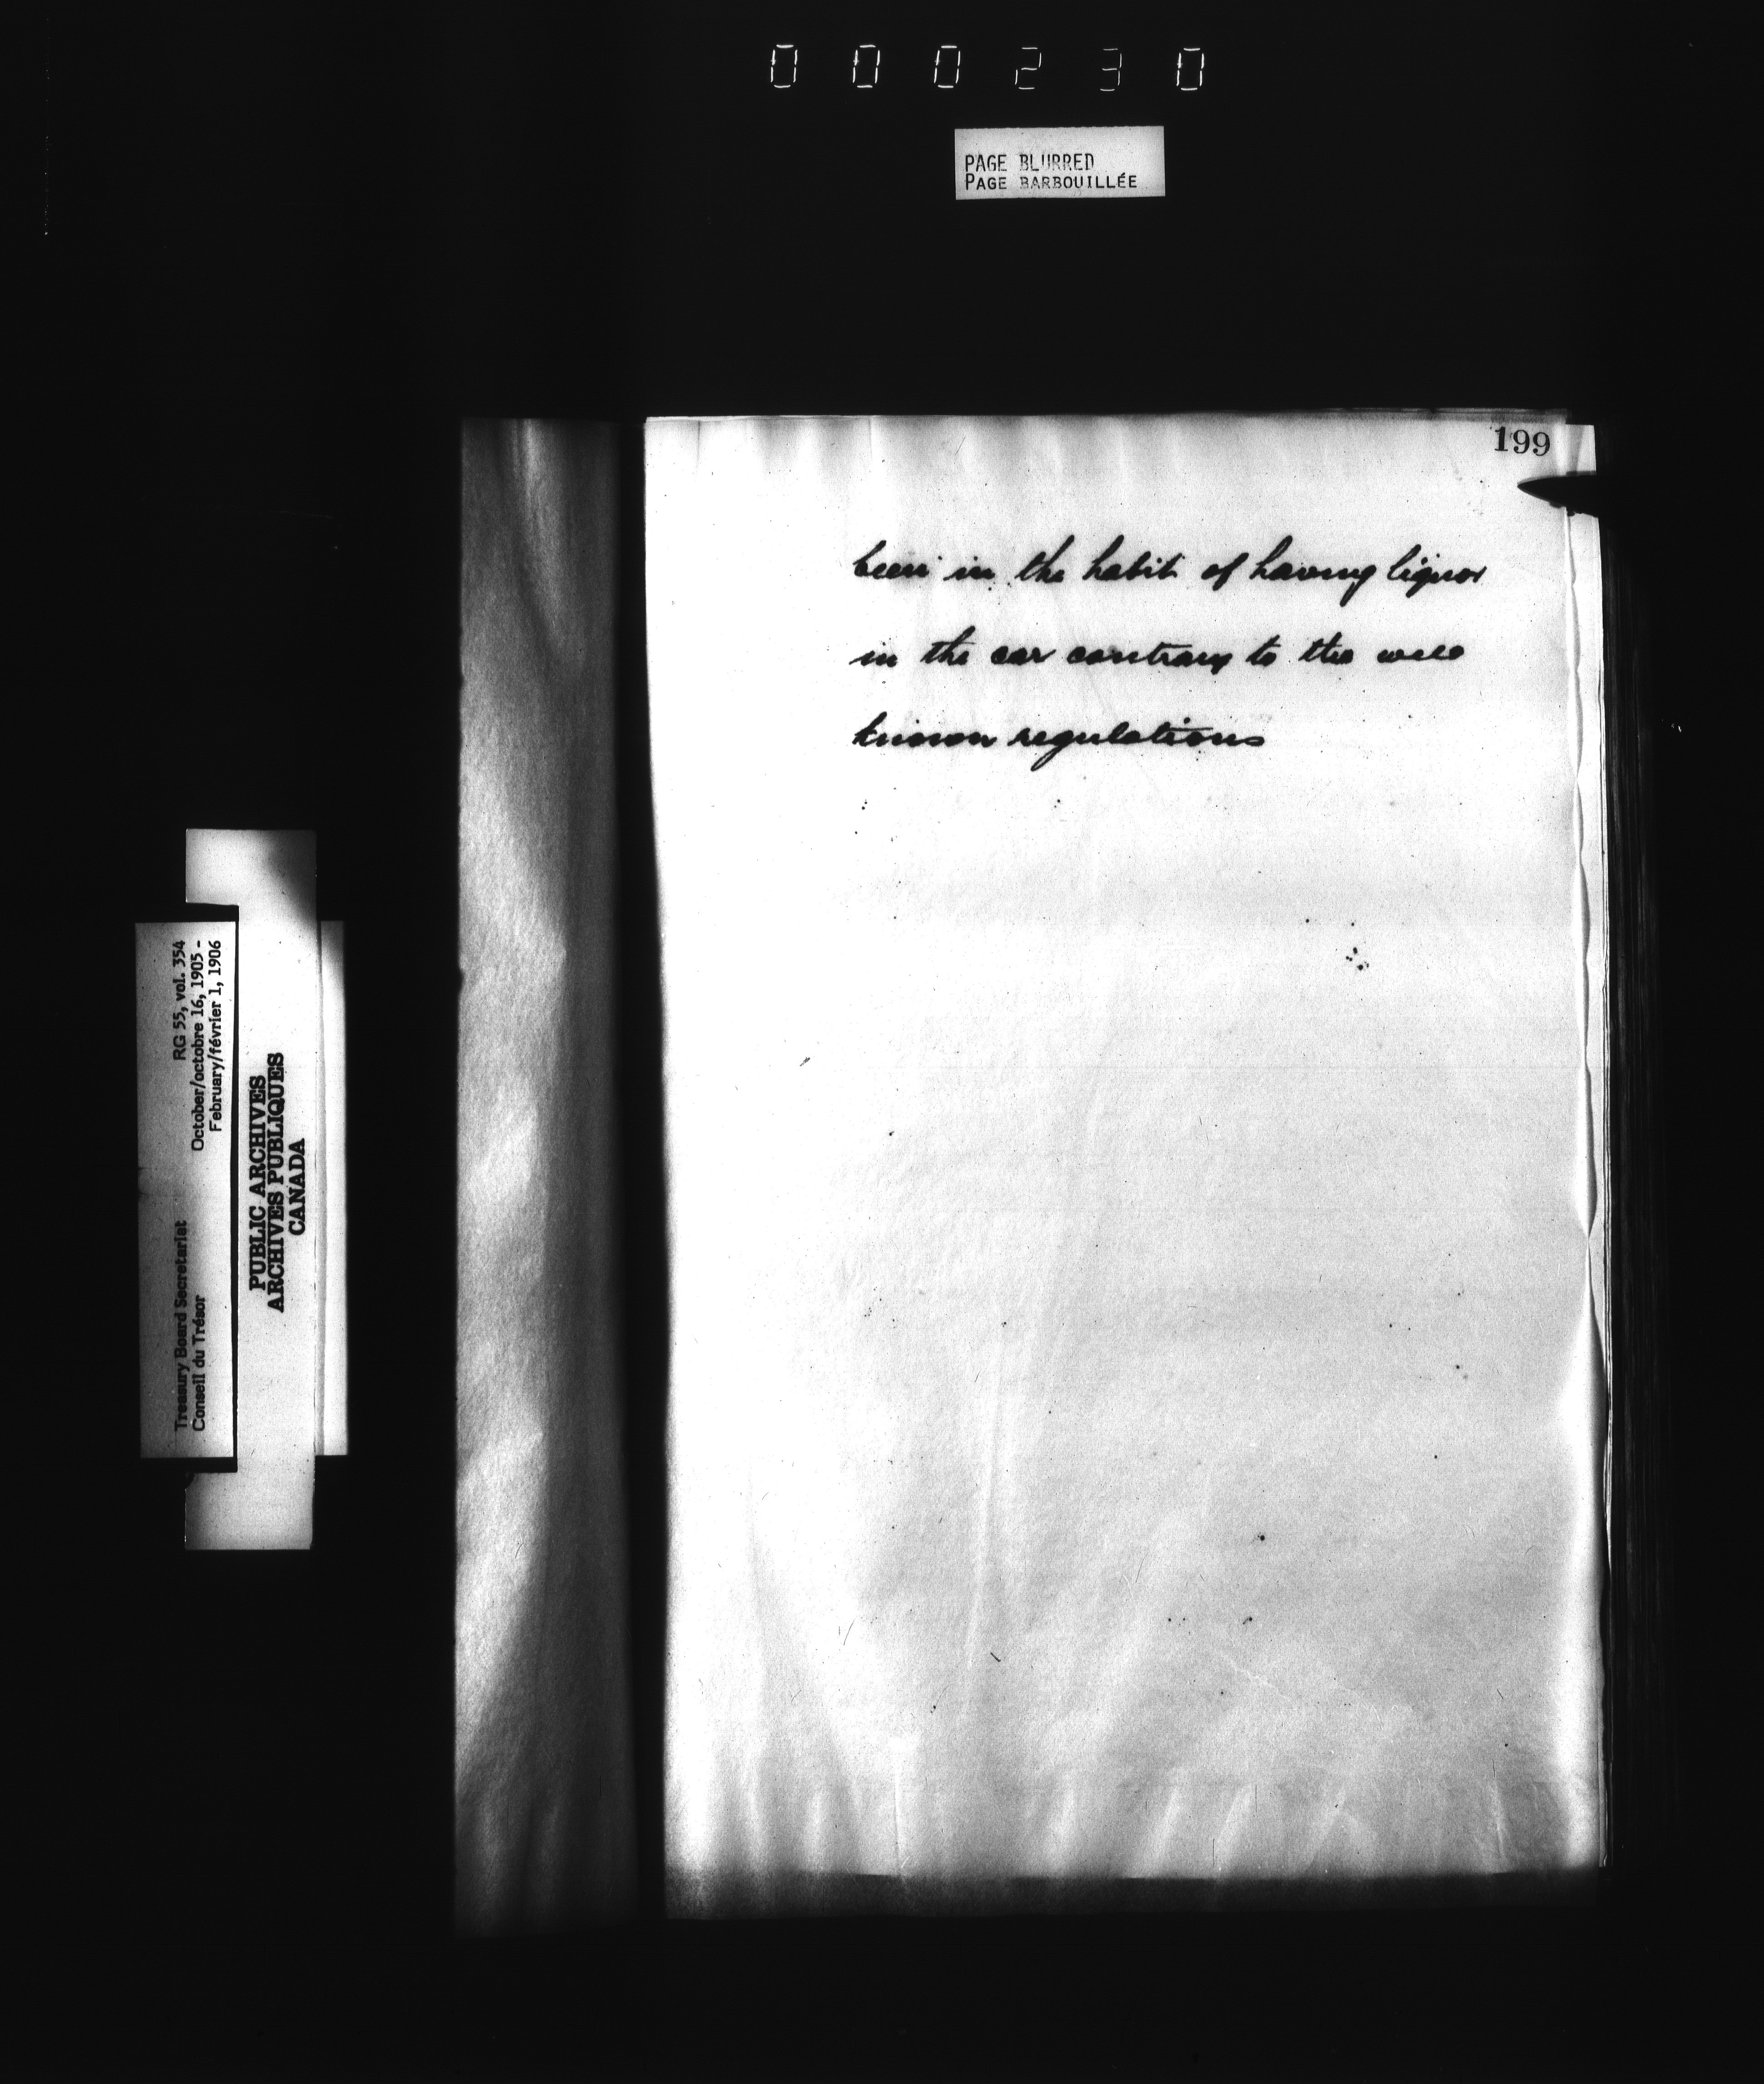 000230
PAGE BLURRED
PAGE BARBOUILLÉE
199
been in the habit of having liquor
in the car contrary to the well
known regulations
Treasury Board Secretariat RG 55, vol. 354
Conseil du Trésor October/octobre 16, 1905 -
February/février 1, 1906
PUBLIC ARCHIVES
ARCHIVES PUBLIQUES
CANADA